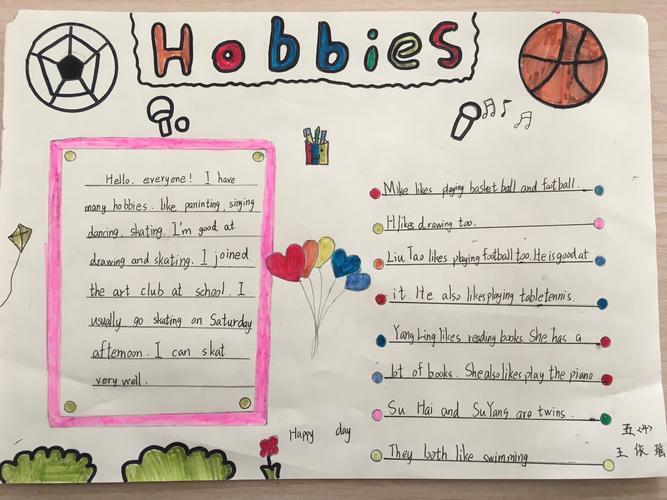 Hobbies
Hello, everyone! I have
many hobbies. like paninting, singing
dancing, skating. I'm good at
drawing and skating. I joined
the art club at school. I
usually go skating on Saturday
afternoon. I can skat
very well.
Mike likes playing basketball and football.
H likes drawing too.
Liu Tao likes playing football too. He is good at
it. He also likes playing table tennis.
Yang Ling likes reading books. She has a
lot of books. She also likes play the piano
Su Hai and Su Yang are twins.
They both like swimming
Happy day
五〈4〉
王